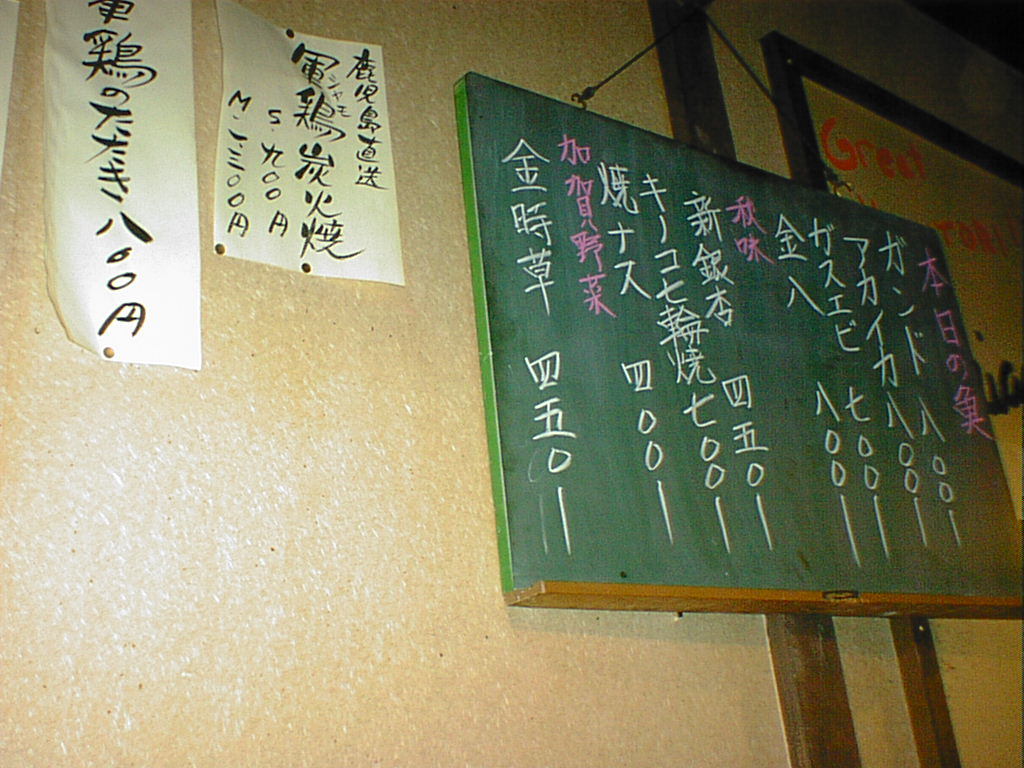 Great
本日の魚
ガンド 八〇〇ー
アカイカ 八〇〇ー
ガスエビ 七〇〇ー
金八 八〇〇ー
秋味
新銀杏 四五〇ー
キノコ七輪焼 七〇〇ー
焼ナス 四〇〇ー
加賀野菜
金時草 四五〇ー
鹿児島直送
シャモ
軍鶏炭火焼
S.九〇〇円
M.一三〇〇円
軍鶏のたたき八〇〇円